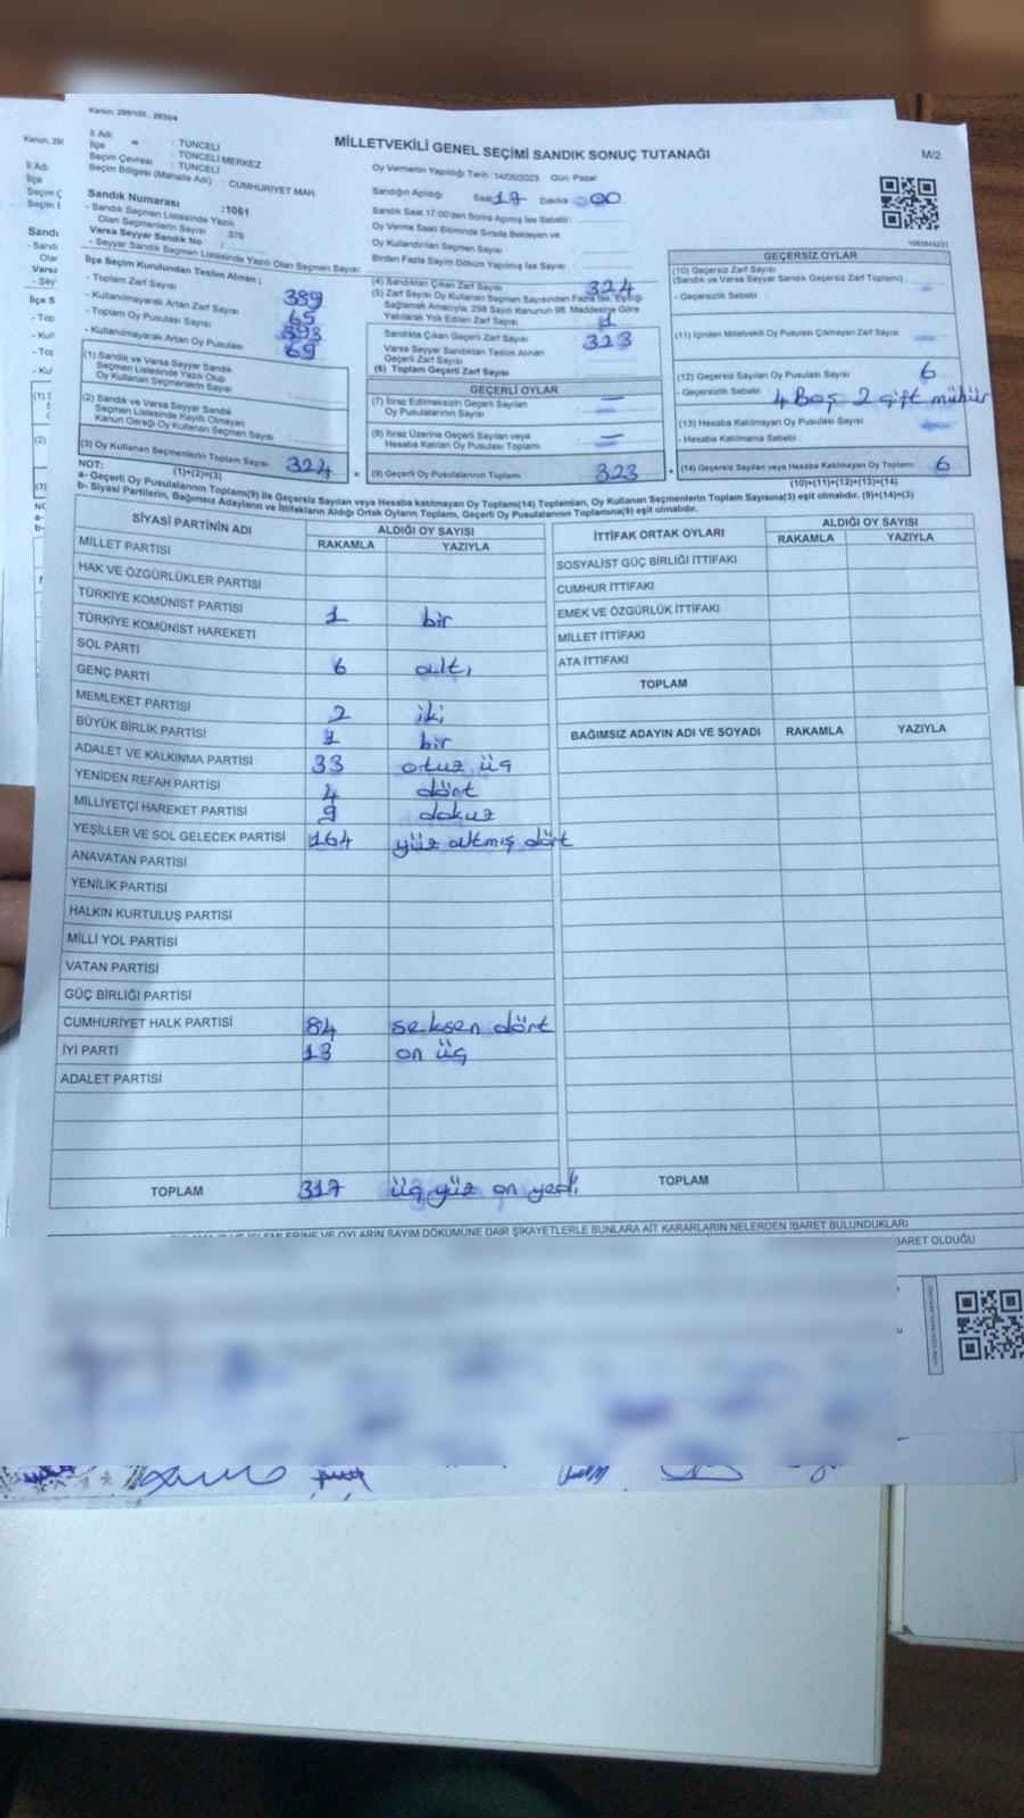 Kanun, 298/105 , 2839/4
MİLLETVEKİLİ GENEL SEÇİMİ SANDIK SONUÇ TUTANAĞI
M/2
İl Adı : TUNCELİ
İlçe : TUNCELİ MERKEZ
Seçim Çevresi : TUNCELİ
Seçim Bölgesi (Mahalle Adı) CUMHURİYET MAH.
Sandık Numarası :1061
- Sandık Seçmen Listesinde Yazılı
Olan Seçmenlerin Sayısı 376
Varsa Seyyar Sandık No :
- Seyyar Sandık Seçmen Listesinde Yazılı Olan Seçmen Sayısı
İlçe Seçim Kurulundan Teslim Alınan ;
- Toplam Zarf Sayısı 389
- Kullanılmayarak Artan Zarf Sayısı 65
- Toplam Oy Pusulası Sayısı 393
- Kullanılmayarak Artan Oy Pusulası 69
(1) Sandık ve Varsa Seyyar Sandık
Seçmen Listesinde Yazılı Olup
Oy Kullanan Seçmenlerin Sayısı
(2) Sandık ve Varsa Seyyar Sandık
Seçmen Listesinde Kayıtlı Olmayan
Kanun Gereği Oy Kullanan Seçmen Sayısı
(3) Oy Kullanan Seçmenlerin Toplam Sayısı 324
(1)+(2)=(3)
Oy Vermenin Yapıldığı Tarih: 14/05/2023 Gün: Pazar
Sandığın Açıldığı Saat 17 Dakika 00
Sandık Saat 17:00'den Sonra Açılmış İse Sebebi
Oy Verme Saati Bitiminde Sırada Bekleyen ve
Oy Kullandırılan Seçmen Sayısı
Birden Fazla Sayım Döküm Yapılmış İse Sayısı
(4) Sandıktan Çıkan Zarf Sayısı 324
(5) Zarf Sayısı Oy Kullanan Seçmen Sayısından Fazla İse, Eşitliği
Sağlamak Amacıyla, 298 Sayılı Kanunun 98. Maddesine Göre
Yakılarak Yok Edilen Zarf Sayısı 1
Sandıkta Çıkan Geçerli Zarf Sayısı 323
Varsa Seyyar Sandıktan Teslim Alınan
Geçerli Zarf Sayısı
(6) Toplam Geçerli Zarf Sayısı
GEÇERLİ OYLAR
(7) İtiraz Edilmeksizin Geçerli Sayılan
Oy Pusulalarının Sayısı —
(8) İtiraz Üzerine Geçerli Sayılan veya
Hesaba Katılan Oy Pusulası Toplamı —
(9) Geçerli Oy Pusulalarının Toplamı 323
GEÇERSİZ OYLAR
(10) Geçersiz Zarf Sayısı
(Sandık ve Varsa Seyyar Sandık Geçersiz Zarf Toplamı)
- Geçersizlik Sebebi
(11) İçinden Milletvekili Oy Pusulası Çıkmayan Zarf Sayısı
(12) Geçersiz Sayılan Oy Pusulası Sayısı 6
- Geçersizlik Sebebi 4 Boş 2 çift mühür
(13) Hesaba Katılmayan Oy Pusulası Sayısı
- Hesaba Katılmama Sebebi
(14) Geçersiz Sayılan veya Hesaba Katılmayan Oy Toplamı 6
(10)+(11)+(12)+(13)=(14)
NOT:
a- Geçerli Oy Pusulalarının Toplamı(9) ile Geçersiz Sayılan veya Hesaba katılmayan Oy Toplamı(14) Toplamları, Oy Kullanan Seçmenlerin Toplam Sayısına(3) eşit olmalıdır. (9)+(14)=(3)
b- Siyasi Partilerin, Bağımsız Adayların ve İttifakların Aldığı Ortak Oyların Toplamı, Geçerli Oy Pusulalarının Toplamına(9) eşit olmalıdır.
SİYASİ PARTİNİN ADI ALDIĞI OY SAYISI
RAKAMLA YAZIYLA
MİLLET PARTİSİ
HAK VE ÖZGÜRLÜKLER PARTİSİ
TÜRKİYE KOMÜNİST PARTİSİ 1 bir
TÜRKİYE KOMÜNİST HAREKETİ
SOL PARTİ 6 altı
GENÇ PARTİ
MEMLEKET PARTİSİ 2 iki
BÜYÜK BİRLİK PARTİSİ 1 bir
ADALET VE KALKINMA PARTİSİ 33 otuz üç
YENİDEN REFAH PARTİSİ 4 dört
MİLLİYETÇİ HAREKET PARTİSİ 9 dokuz
YEŞİLLER VE SOL GELECEK PARTİSİ 164 yüz altmış dört
ANAVATAN PARTİSİ
YENİLİK PARTİSİ
HALKIN KURTULUŞ PARTİSİ
MİLLİ YOL PARTİSİ
VATAN PARTİSİ
GÜÇ BİRLİĞİ PARTİSİ
CUMHURİYET HALK PARTİSİ 84 seksen dört
İYİ PARTİ 13 on üç
ADALET PARTİSİ
TOPLAM 317 üç yüz on yedi
İTTİFAK ORTAK OYLARI ALDIĞI OY SAYISI
RAKAMLA YAZIYLA
SOSYALİST GÜÇ BİRLİĞİ İTTİFAKI
CUMHUR İTTİFAKI
EMEK VE ÖZGÜRLÜK İTTİFAKI
MİLLET İTTİFAKI
ATA İTTİFAKI
TOPLAM
BAĞIMSIZ ADAYIN ADI VE SOYADI RAKAMLA YAZIYLA
TOPLAM
VE OYLARIN SAYIM DÖKÜMÜNE DAİR ŞİKAYETLERLE BUNLARA AİT KARARLARIN NELERDEN İBARET BULUNDUKLARI
OLDUĞU